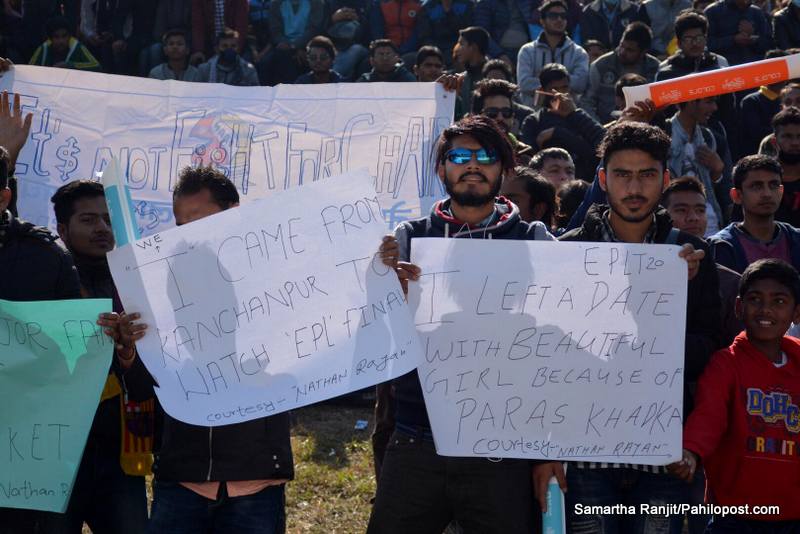 Let's NOT FIGHT FOR CHAIR
WE
"I" CAME FROM
KANCHANPUR TO
WATCH 'EPL' FINAL
courtesy- "NATHAN Rayan"
EPLT20
I LEFT A DATE
WITH BEAUTIFUL
GIRL BECAUSE OF
PARAS KHADKA
courtesy- "NATHAN RAYAN"
JOR FAN
KET
Nathan R
COLORS
DOHC
Samartha Ranjit/Pahilopost.com